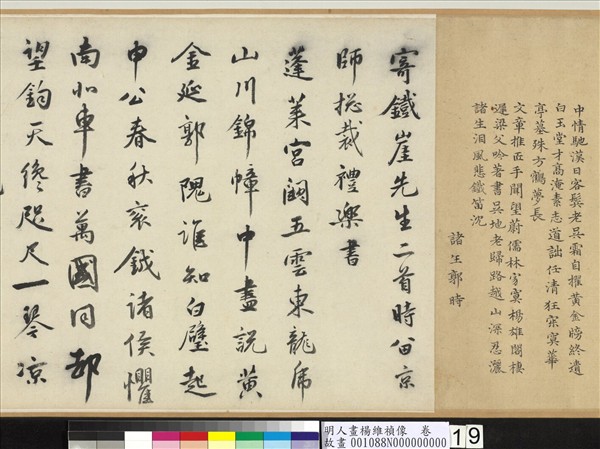 中情馳漢日客鬢老吳霜自擢黃金牓終遺
白玉堂才高淹素志道詘任清狂寂寞華
亭墓殊方鶴夢長
文章推匠手聞望蔚儒林寂寞楊雄閣棲
遲梁父吟著書吳地老歸路越山深忍灑
諸生泪風悲鐵笛沉
諸生郭時
寄鐵崖先生二首時留京
師捴裁禮樂書
蓬萊宮闕五雲東龍虎
山川錦幛中盡說黃
金延郭隗誰知白璧起
申公春秋袞鉞諸侯懼
南北車書萬國同却
望鈞天纔咫尺一琴凉
明人畫楊維禎像 卷
故畫 001088N000000000
19